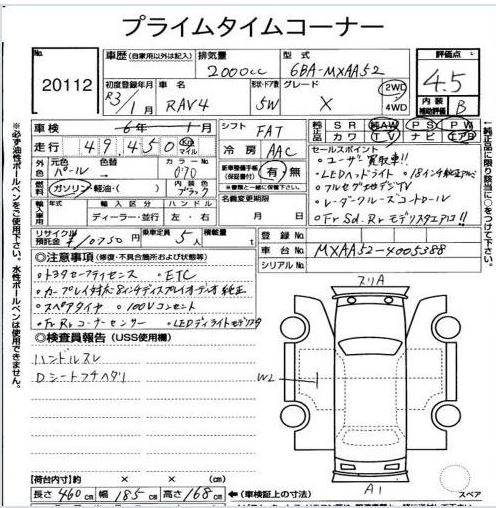 プライムタイムコーナー
No. 20112
車歴 (自家用以外は記入) 排気量 2000cc 型式 6BA-MXAA52
評価点 4.5
内装補助評価 B
初度登録年月 R3/1月 車名 RAV4 形状・ドア数 5W グレード X 2WD 4WD
車検 6年1月 シフト FAT
純正品 SR 純AW PS PW
カワ TV ナビ エアB
走行 49,450 Km マイル 冷房 AAC
セールスポイント
・ユーザー買取車!!
・LEDヘッドライト ・18インチ純正アルミ
・フルセグ地デジTV
・レーダークルーズコントロール
・Fr Sd.Rr モデリスタエアロ!!
外色 元色 パール 色替 カラーNo 070
燃料 ガソリン・軽油・( ) 内装色 ブラック
新車整備手帳(保証書付) 有・無
※書類と一緒に保管して下さい。
名義変更期限 月 日
輸入車用 輸入区分 ハンドル
ディーラー・並行 左・右
リサイクル預託金 ¥10750円 乗車定員 5人 積載量 t
登録No
車台No MXAA52-4005388
シリアルNo
◎注意事項 (修復・不具合箇所および状態等)
・トヨタセーフティセンス ・ETC
・カープレイ対応8インチディスプレイオーディオ純正
・スペアタイヤ ・100Vコンセント
・Fr Rr コーナーセンサー ・LEDデイライトモデリスタ
◎検査員報告 (USS使用欄)
ハンドルスレ
Dシートフチヘタリ
スリA
WL
A1
スペア
【荷台内寸】 × × (cm)
長さ 460 cm 幅 185 cm 高さ 168 cm ←(車検証上の寸法)
※必ず油性ボールペンをご使用下さい。水性ボールペンは使用できません。
←純正品に限り該当に○をつけて下さい。